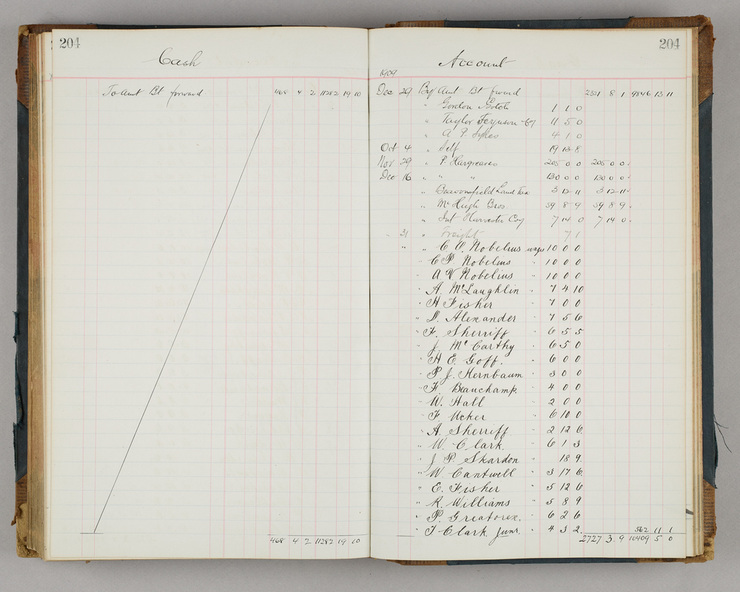 204
Cash
To Amt Bt forward 468 4 2 11282 19 10
468 4 2 11282 19 10
204
Account
1909
Dec 29 By Amt Bt forwd 2581 8 1 9846 13 11
" Gordon Gotch 1 1 0
" Taylor Ferguson & Cy 11 5 0
" A. P. Sykes 4 1 0
Oct 4 " Self 19 13 8
Nov 29 " P. Hargreaves 205 0 0 205 0 0
Dec 16 " " " 130 0 0 130 0 0
" Land Tax 3 12 11 3 12 11
" McHugh Bros. 39 8 9 39 8 9
" Int Harvester Coy 7 14 0 7 14 0
" 21 " Freight 7 1
" " C. A. Nobelius wages 10 0 0
" C P Nobelius " 10 0 0
" A V Nobelius " 10 0 0
" A. McLaughlin " 7 4 10
" H Fisher " 7 0 0
" D. Alexander " 7 5 6
" F. Sherriff " 6 5 5
" J. McCarthy " 6 5 0
" H E. Goff. " 6 0 0
" P J. Kernbaum " 3 0 0
" F. Beauchamp " 4 0 0
" W. Hall " 2 0 0
" F Ucker " 6 10 0
" A. Sherriff " 2 12 6
" W. Clark " 6 1 3
" J P. Skardon " 18 9
" W Cantwell " 3 17 6
" E. Fisher " 5 12 6
" R. Williams " 5 8 9
" P. Greatorex " 6 2 6
" T. Clark Junr. " 4 3 2 562 11 1
2727 3 9 10409 5 0